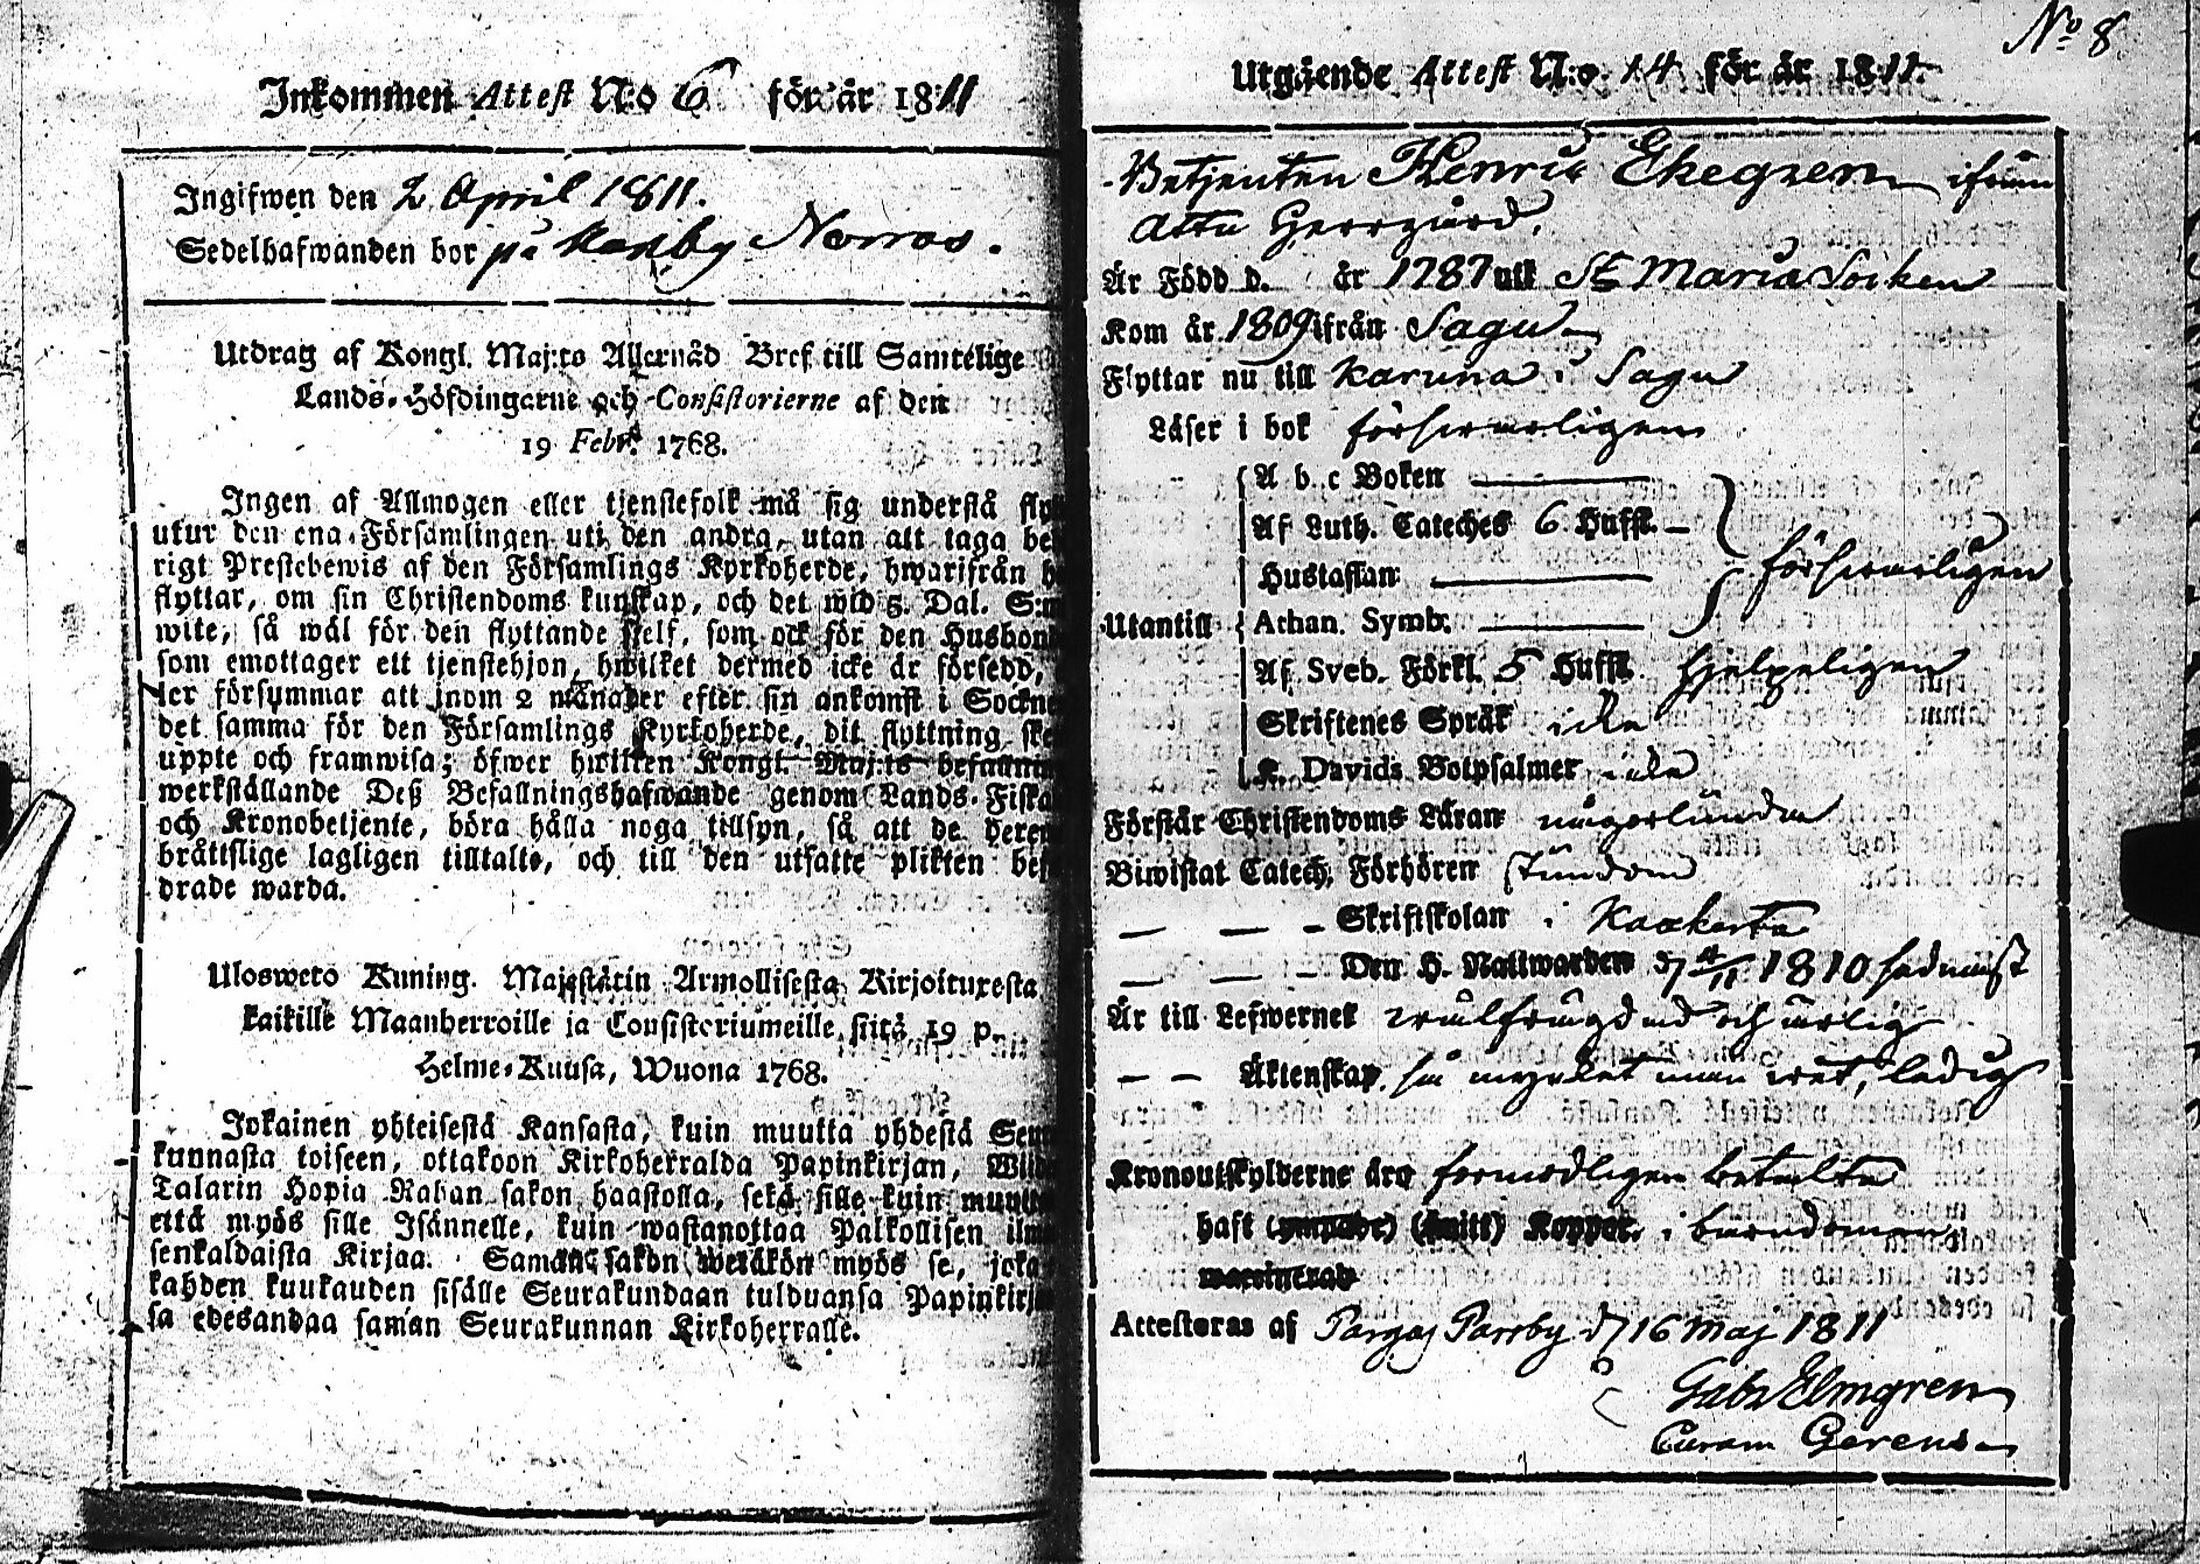 Inkommen Attest N:o 6 för år 1811
Ingifwen den 2 April 1811.
Sedelhafwanden bor på Norras.
Utdrag af Kongl. Maj:ts Allernåd Bref till Samtelige
Lands-Höfdingarne och Consistorierne af den
19 Febr. 1768.
Ingen af Allmogen eller tjenstefolk må sig understå
utur den ena Församlingen uti den andra, utan att taga
rigt Prestebewis af den Församlings Kyrkoherde, hwarifrån
flyttar, om sin Christendoms kunskap, och det wid 5. Dal. S:m
wite, så wäl för den flyttande sjelf, som ock för den
som emottager ett tjenstehjon, hwilket dermed icke är försedd,
ler försummar att inom 2 månader efter sin ankomst i
det samma för den Församlings Kyrkoherde, dit flyttning
uppte och framwisa; öfwer hwilken Kongl. Maj:ts
werkställande Deß Befallningshafwande genom Lands-
och Kronobetjente, böra hålla noga tillsyn, så att de
bråttslige lagligen tilltalte, och till den utsatte plikten
drade warda.
Ulosweto Kuning. Majestätin Armollisesta Kirjoituxesta
kaikille Maanherroille ja Consistoriumeille, siitä 19 p.
Helme-Kuusa, Wuona 1768.
Jokainen yhteisestä Kansasta, kuin muutta yhdestä
kunnasta toiseen, ottakoon Kirkoherralda Papinkirjan,
Talarin Hopia Rahan sakon haastolla, sekä sille kuin
että myös sille Isännelle, kuin wastanottaa Palkollisen
senkaldaista Kirjaa. Saman sakon wetäkön myös se, joka
kahden kuukauden sisälle Seurakundaan tulduansa
sa edesandaa saman Seurakunnan Kirkoherralle.
No 8
Utgående Attest N:o 14 för år 1811.
Betjenten Henric Ekegren ifrån
Attu Herrgård.
Är Född d. år 1787 uti St Maria Socken
Kom år 1809 ifrån Sagu
Flyttar nu till Karuna i Sagu
Läser i bok förswarligen
A b c Boken
Af Luth. Cateches 6 Hufst.
förswarligen
Hustaflan
Utantill Athan. Symb.
Af Sveb. Förkl. 5 Hufst. hjelpeligen
Skriftenes Språk icke
K. Davids Botpsalmer icke
Förstår Christendoms Läran någorlunda
Biwistat Catech. Förhören stundom
Skriftskolan i
Den H. Nattwarden 1810 sednast
Är till Lefwernet wälfrägdad och ärlig
Äktenskap, så mycket man wet, ledig
Kronoutskylderne äro förmodligen betalte
haft Koppor i barndomen
Attesteras af Pargas Parsby d 16 Maj 1811
Gabr Elmgren
Curam Gerens